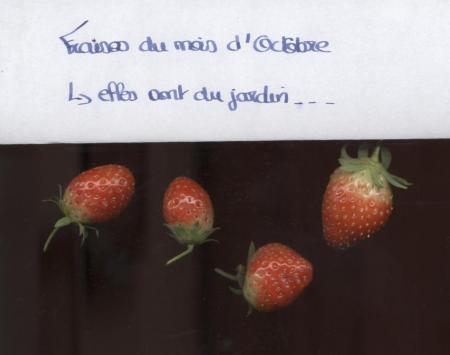 Fraises du mois d'Octobre
↳ elles sont du jardin...